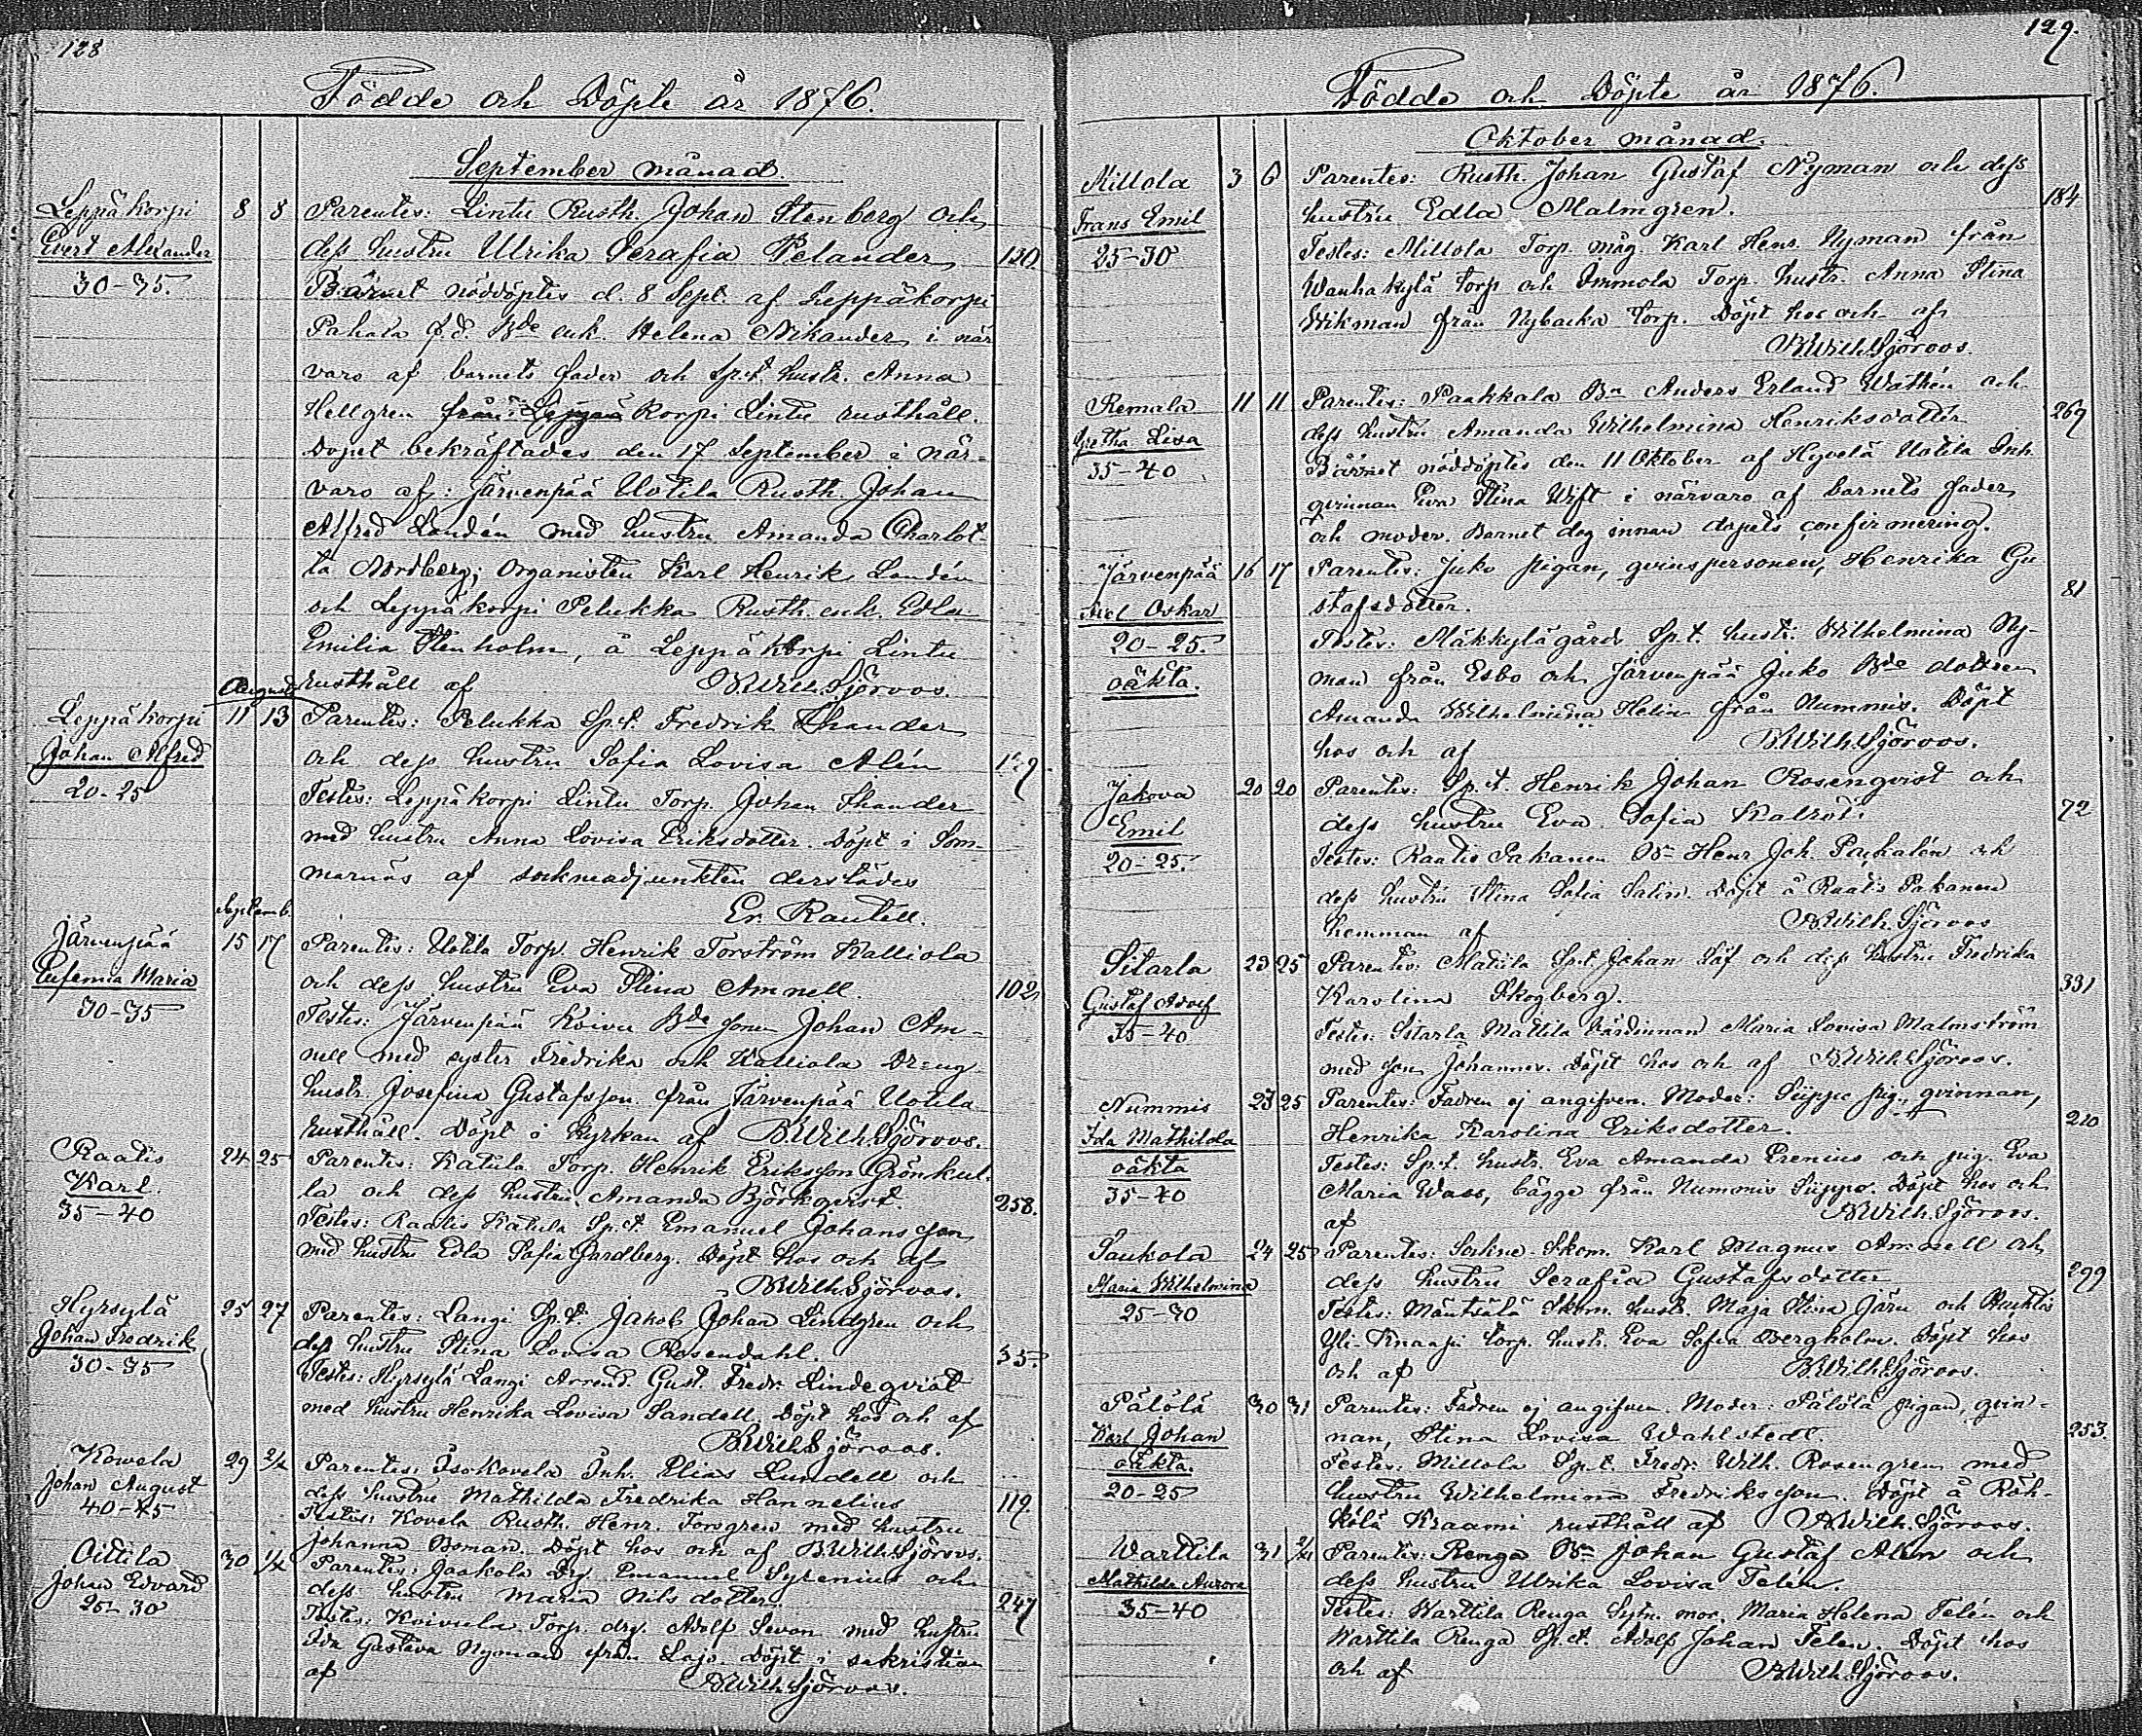 128
Födde och Döpte år 1876.
September månad.
Leppäkorpi 8 8 Parentes: Lintu Rusth. Johan Stenberg och
Evert Alexander dess hustru Ulrika Serafia Pelander 120
30-35. Barnet nöddöptes d. 8 Sept. af Leppäkorpi
Pahala f.d. Bde enk. Helena Nikander i när
varo af barnets fader och Sp.t. hustr. Anna
Hellgren från Leppäkorpi Lintu rusthåll.
Dopet bekräftades den 17 September i när-
varo af: Järvenpää Uotila Rusth. Johan
Alfred Landén med hustru Amanda Charlot-
ta Nordberg; Organisten Karl Henrik Landén
och Leppäkorpi Pelukka Rusth. enk. Edla
Emilia Stenholm, å Leppäkorpi Lintu
Augusti rusthåll af B.Wilh.Sjöroos.
Leppäkorpi 11 13 Parentes: Pelukka Sp.t. Fredrik Thander
Johan Alfred och dess hustru Sofia Lovisa Alén 129
20-25 Testes: Leppäkorpi Lintu Torp. Johan Thander
med hustru Anna Lovisa Eriksdotter. Döpt i Som-
marnäs af sockneadjunkten derstädes
Septemb. Er. Rautell.
Järvenpää 15 17 Parentes: Uotila Torp. Henrik Torström Kalliola
Eufemia Maria och dess hustru Eva Stina Amnell. 102
30-35 Testes: Järvenpää Koivu Bde sonen Johan Am-
nell med syster Fredrika och Kalliola Dreng
hustr. Josefina Gustafsson från Järvenpää Uotila
rusthåll. Döpt i kyrkan af B.Wilh.Sjöroos.
Raatis 24 25 Parentes: Katula Torp. Henrik Eriksson Grönkul-
Karl. la och dess hustru Amanda Björkqvist. 258.
35-40 Testes: Raatis Katula Sp.t. Emanuel Johansson
med hustru Edla Sofia Gardberg. Döpt hos och af
B.Wilh.Sjöroos.
Hyrsylä 25 27 Parentes: Langi Sp.t. Jakob Johan Lindgren och
Johan Fredrik dess hustru Stina Lovisa Rosendahl. 35.
30-35 Testes: Hyrsylä Langi Arrend. Gust. Fredr. Lindeqvist
med hustru Henrika Lovisa Sandell. Döpt hos och af
B.Wilh.Sjöroos.
Kowela 29 Parentes: Isokovela Inh. Elias Lundell och
Johan August dess hustru Mathilda Fredrika Hannelius 119.
40-45 Testes: Kovela Rusth. Henr. Forsgren med hustru
Johanna Boman. Döpt hos och af B.Wilh.Sjöroos.
Oittila 30 Parentes: Jaakola Drg Emanuel Syrenius och
Johan Edvard dess hustru Maria Nilsdotter 247
25-30 Testes: Koivula Torp. drg. Adolf Sevon med hustru
Ida Gustava Nyman från Lojo. Döpt i sakristian
af B.Wilh.Sjöroos.
129.
Födde och Döpte år 1876.
Oktober månad.
Millola 3 6 Parentes: Rusth. Johan Gustaf Nyman och dess
Frans Emil hustru Edla Malmgren. 184
25-30 Testes: Millola Torp. måg. Karl Henr. Nyman från
Wanhakylä torp och Immola Torp. hustr. Anna Stina
Wikman från Nybacka Torp. Döpt hos och af
B.Wilh.Sjöroos.
Remala 11 11 Parentes: Paakkala Bn Anders Erland Wathén och
Gretha Lisa dess hustru Amanda Wilhelmina Henriksdotter 269
35-40 Barnet nöddöptes den 11 Oktober af Hyvelä Uotila Inh.
qvinnan Eva Stina Wift i närvaro af barnets fader
och moder. Barnet dog innan dopets confirmering.
Järvenpää 16 17 Parentes: Juko pigan, qvinspersonen, Henrika Gu
Axel Oskar stafsdotter. 81
20-25. Testes: Mäkkylägårds Sp.t. hustr. Wilhelmina Ny-
oäkta. man från Esbo och Järvenpää Juko Bde dottren
Amanda Wilhelmina Helin från Nummis. Döpt
hos och af B.Wilh.Sjöroos.
Jakova 20 20 Parentes: Sp.t. Henrik Johan Rosenqvist och
Emil dess hustru Eva Sofia Kalrot. 72
20-25. Testes: Raatis Pakanen Bn Henr. Joh. Packalén och
dess hustru Stina Sofia Salin. Döpt å Raatis Pakanen
hemman af B.Wilh.Sjöroos
Sitarla 23 25 Parentes: Mattila Sp.t. Johan Löf och dess hustru Fredrika
Gustaf Adolf Karolina Skogberg. 331
35-40 Testes: Sitarla Mattila värdinnan Maria Lovisa Malmström
med son Johannes. Döpt hos och af B.Wilh.Sjöroos.
Nummis 23 25 Parentes: Fadren ej angifven. Moder: Siippo pig., qvinnan,
Ida Mathilda Henrika Karolina Eriksdotter. 220
oäkta Testes: Sp.t. hustr. Eva Amanda Prenius och pig. Eva
35-40 Maria Wass, bägge från Nummis Siippo. Döpt hos och
af B.Wilh.Sjöroos.
Saukola 24 25 Parentes: Sockne-Skom. Karl Magnus Amnell och
Maria Wilhelmina dess hustru Serafia Gustafsdotter 299
25-30 Testes: Mäntsälä Skom. hustr. Maja Stina Järn och Huhtis
Yli-Knaapi Torp. hustr. Eva Sofia Bergholm. Döpt hos
och af B.Wilh.Sjöroos.
Pälölä 30 31 Parentes: Fadren ej angifven. Moder: Pälölä pigan, qvin-
Karl Johan nan, Stina Lovisa Wahlstedt. 253.
oäkta. Testes: Millola Sp.t. Fredr. Wilh. Rosengren med
20-25 hustru Wilhelmina Fredriksson. Döpt å Röh-
kölä Kraami rusthåll af B.Wilh.Sjöroos.
Warttila 31 Parentes: Renga Bn Johan Gustaf Alen och
Mathilda Aurora dess hustru Ulrika Lovisa Telén.
35-40 Testes: Warttila Renga Sytn. mor. Maria Helena Telén och
Warttila Renga Sp.t. Adolf Johan Telen. Döpt hos
och af B.Wilh.Sjöroos.